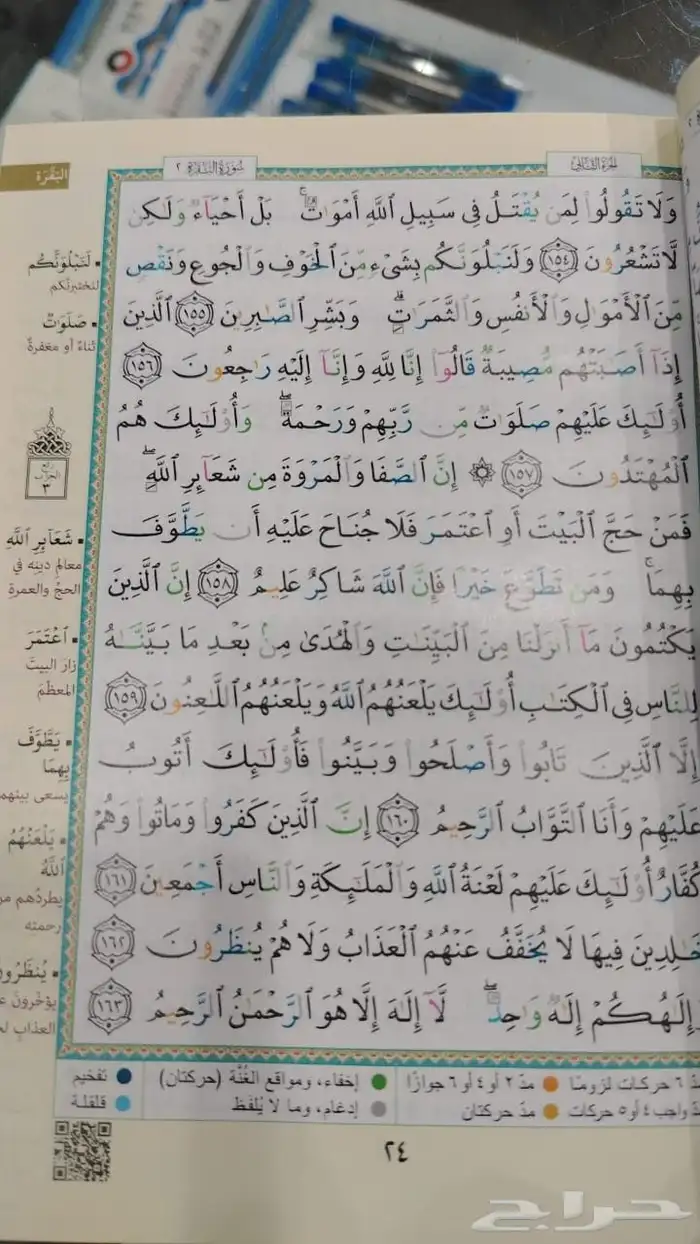 الجزء الثاني
سورة البقرة ٢
البقرة
وَلَا تَقُولُوا۟ لِمَن يُقْتَلُ فِى سَبِيلِ ٱللَّهِ أَمْوَٰتٌۢ ۚ بَلْ أَحْيَآءٌ وَلَـٰكِن
لَّا تَشْعُرُونَ ﴿١٥٤﴾ وَلَنَبْلُوَنَّكُم بِشَىْءٍ مِّنَ ٱلْخَوْفِ وَٱلْجُوعِ وَنَقْصٍ
مِّنَ ٱلْأَمْوَٰلِ وَٱلْأَنفُسِ وَٱلثَّمَرَٰتِ ۗ وَبَشِّرِ ٱلصَّـٰبِرِينَ ﴿١٥٥﴾ ٱلَّذِينَ
إِذَآ أَصَـٰبَتْهُم مُّصِيبَةٌ قَالُوٓا۟ إِنَّا لِلَّهِ وَإِنَّآ إِلَيْهِ رَٰجِعُونَ ﴿١٥٦﴾
أُو۟لَـٰٓئِكَ عَلَيْهِمْ صَلَوَٰتٌ مِّن رَّبِّهِمْ وَرَحْمَةٌ ۖ وَأُو۟لَـٰٓئِكَ هُمُ
ٱلْمُهْتَدُونَ ﴿١٥٧﴾ ۞ إِنَّ ٱلصَّفَا وَٱلْمَرْوَةَ مِن شَعَآئِرِ ٱللَّهِ ۖ
فَمَنْ حَجَّ ٱلْبَيْتَ أَوِ ٱعْتَمَرَ فَلَا جُنَاحَ عَلَيْهِ أَن يَطَّوَّفَ
بِهِمَا ۚ وَمَن تَطَوَّعَ خَيْرًا فَإِنَّ ٱللَّهَ شَاكِرٌ عَلِيمٌ ﴿١٥٨﴾ إِنَّ ٱلَّذِينَ
يَكْتُمُونَ مَآ أَنزَلْنَا مِنَ ٱلْبَيِّنَـٰتِ وَٱلْهُدَىٰ مِنۢ بَعْدِ مَا بَيَّنَّـٰهُ
لِلنَّاسِ فِى ٱلْكِتَـٰبِ أُو۟لَـٰٓئِكَ يَلْعَنُهُمُ ٱللَّهُ وَيَلْعَنُهُمُ ٱللَّـٰعِنُونَ ﴿١٥٩﴾
إِلَّا ٱلَّذِينَ تَابُوا۟ وَأَصْلَحُوا۟ وَبَيَّنُوا۟ فَأُو۟لَـٰٓئِكَ أَتُوبُ
عَلَيْهِمْ وَأَنَا ٱلتَّوَّابُ ٱلرَّحِيمُ ﴿١٦٠﴾ إِنَّ ٱلَّذِينَ كَفَرُوا۟ وَمَاتُوا۟ وَهُمْ
كُفَّارٌ أُو۟لَـٰٓئِكَ عَلَيْهِمْ لَعْنَةُ ٱللَّهِ وَٱلْمَلَـٰٓئِكَةِ وَٱلنَّاسِ أَجْمَعِينَ ﴿١٦١﴾
خَـٰلِدِينَ فِيهَا لَا يُخَفَّفُ عَنْهُمُ ٱلْعَذَابُ وَلَا هُمْ يُنظَرُونَ ﴿١٦٢﴾
وَإِلَـٰهُكُمْ إِلَـٰهٌ وَٰحِدٌ ۖ لَّآ إِلَـٰهَ إِلَّا هُوَ ٱلرَّحْمَـٰنُ ٱلرَّحِيمُ ﴿١٦٣﴾
لَنَبْلُوَنَّكُم
لنختبرنّكم
صَلَوَاتٌ
ثناءٌ أو مغفرةٌ
ربع
الحزب
٣
شَعَآئِرِ ٱللَّهِ
معالم دينه في
الحجّ والعمرة
ٱعْتَمَرَ
زار البيت
المعظّم
يَطَّوَّفَ
بِهِمَا
يسعى بينهما
يَلْعَنُهُمُ
ٱللَّهُ
يطردُهم من
رحمته
يُنظَرُونَ
يؤخّرون
العذاب
مدّ ٦ حركات لزومًا
مدّ ٢ أو ٤ أو ٦ جوازًا
إخفاء، ومواقع الغُنَّة (حركتان)
تفخيم
مدّ واجب ٤ أو ٥ حركات
مدّ حركتان
إدغام، وما لا يُلفَظ
قلقلة
٢٤
حراج